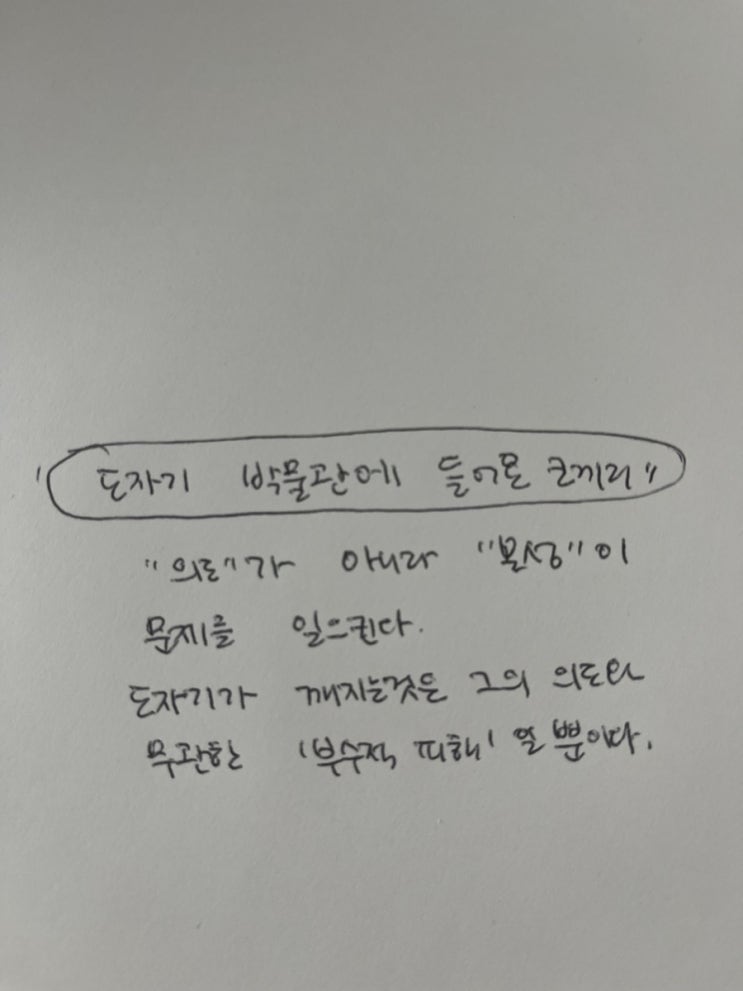 '도자기 박물관에 들어온 코끼리"
"의도"가 아니라 "본성"이
문제를 일으킨다.
도자기가 깨지는것은 그의 의도와
무관한 '부수적 피해' 일 뿐이다.